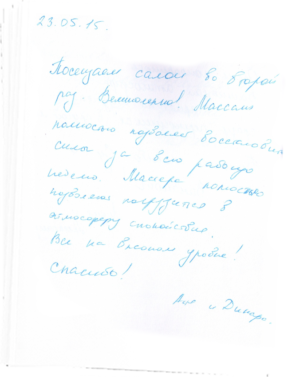 23.05.15.
Посещаем салон во второй
раз. Великолепно! Массаж
полностью позволяет восстановить
силы за всю рабочую
неделю. Мастера полностью
позволяют погрузиться в
атмосферу спокойствия.
Все на высоком уровне!
Спасибо!
и Динара.